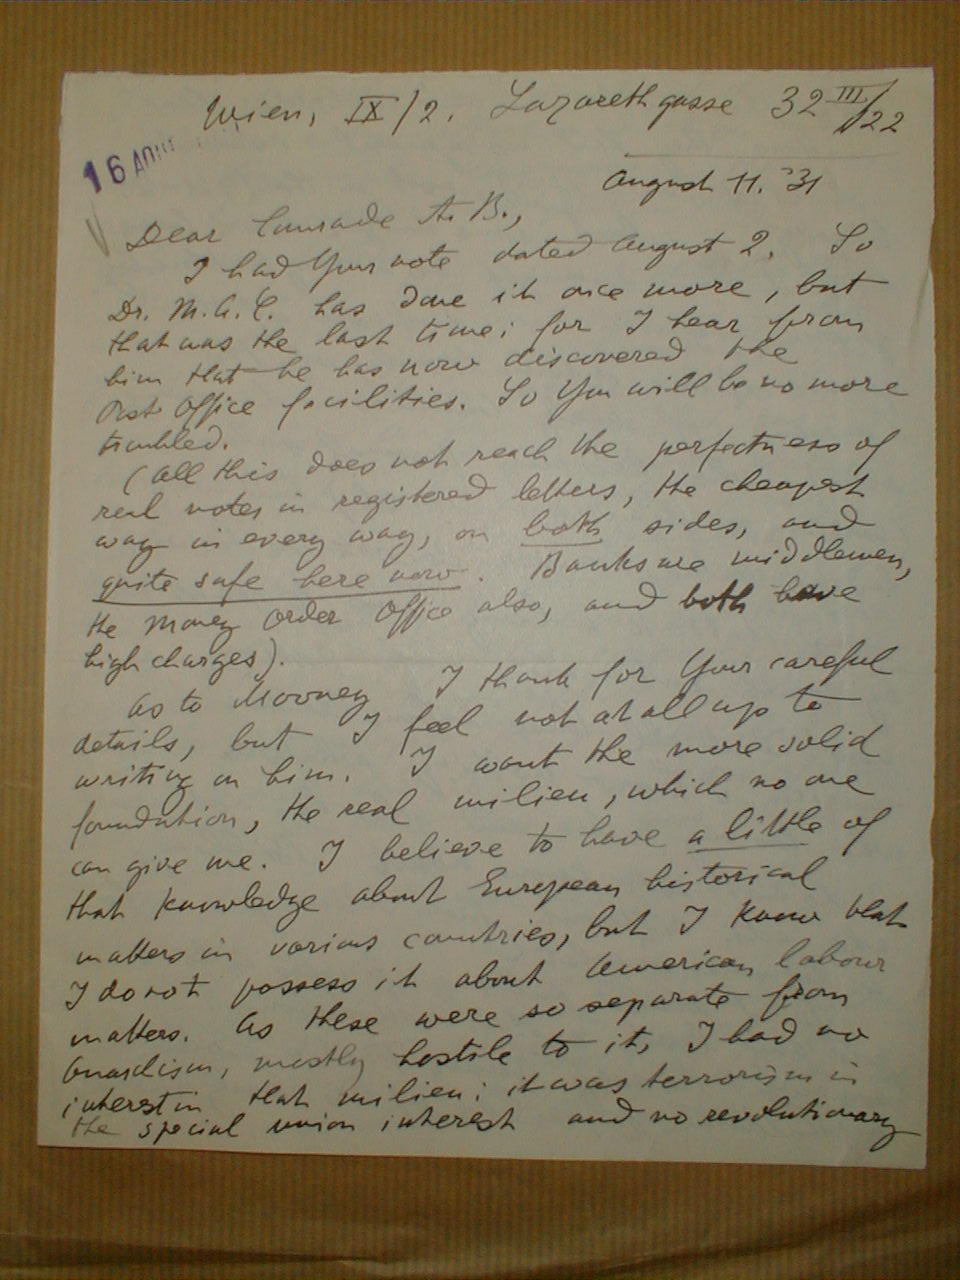 Wien, IX/2. Lazarethgasse 32 III/22
16 AOU
August 11. '31
Dear Comrade A. B.,
I had Your note dated August 2. So
Dr. M. A. C. has done it once more, but
that was the last time; for I hear from
him that he has now discovered the
Post Office facilities. So You will be no more
troubled.
(All this does not reach the perfectness of
real notes in registered letters, the cheapest
way in every way, on both sides, and
quite safe here now. Banks are middlemen,
the Money Order Office also, and both have
high charges).
As to Mooney I thank for Your careful
details, but I feel not at all up to
writing on him. I want the more solid
foundation, the real milieu, which no one
can give me. I believe to have a little of
that knowledge about European historical
matters in various countries, but I know that
I do not possess it about American labour
matters. As these were so separate from
Anarchism, mostly hostile to it, I had no
interest in that milieu: it was terrorism in
the special union interest and no revolutionary